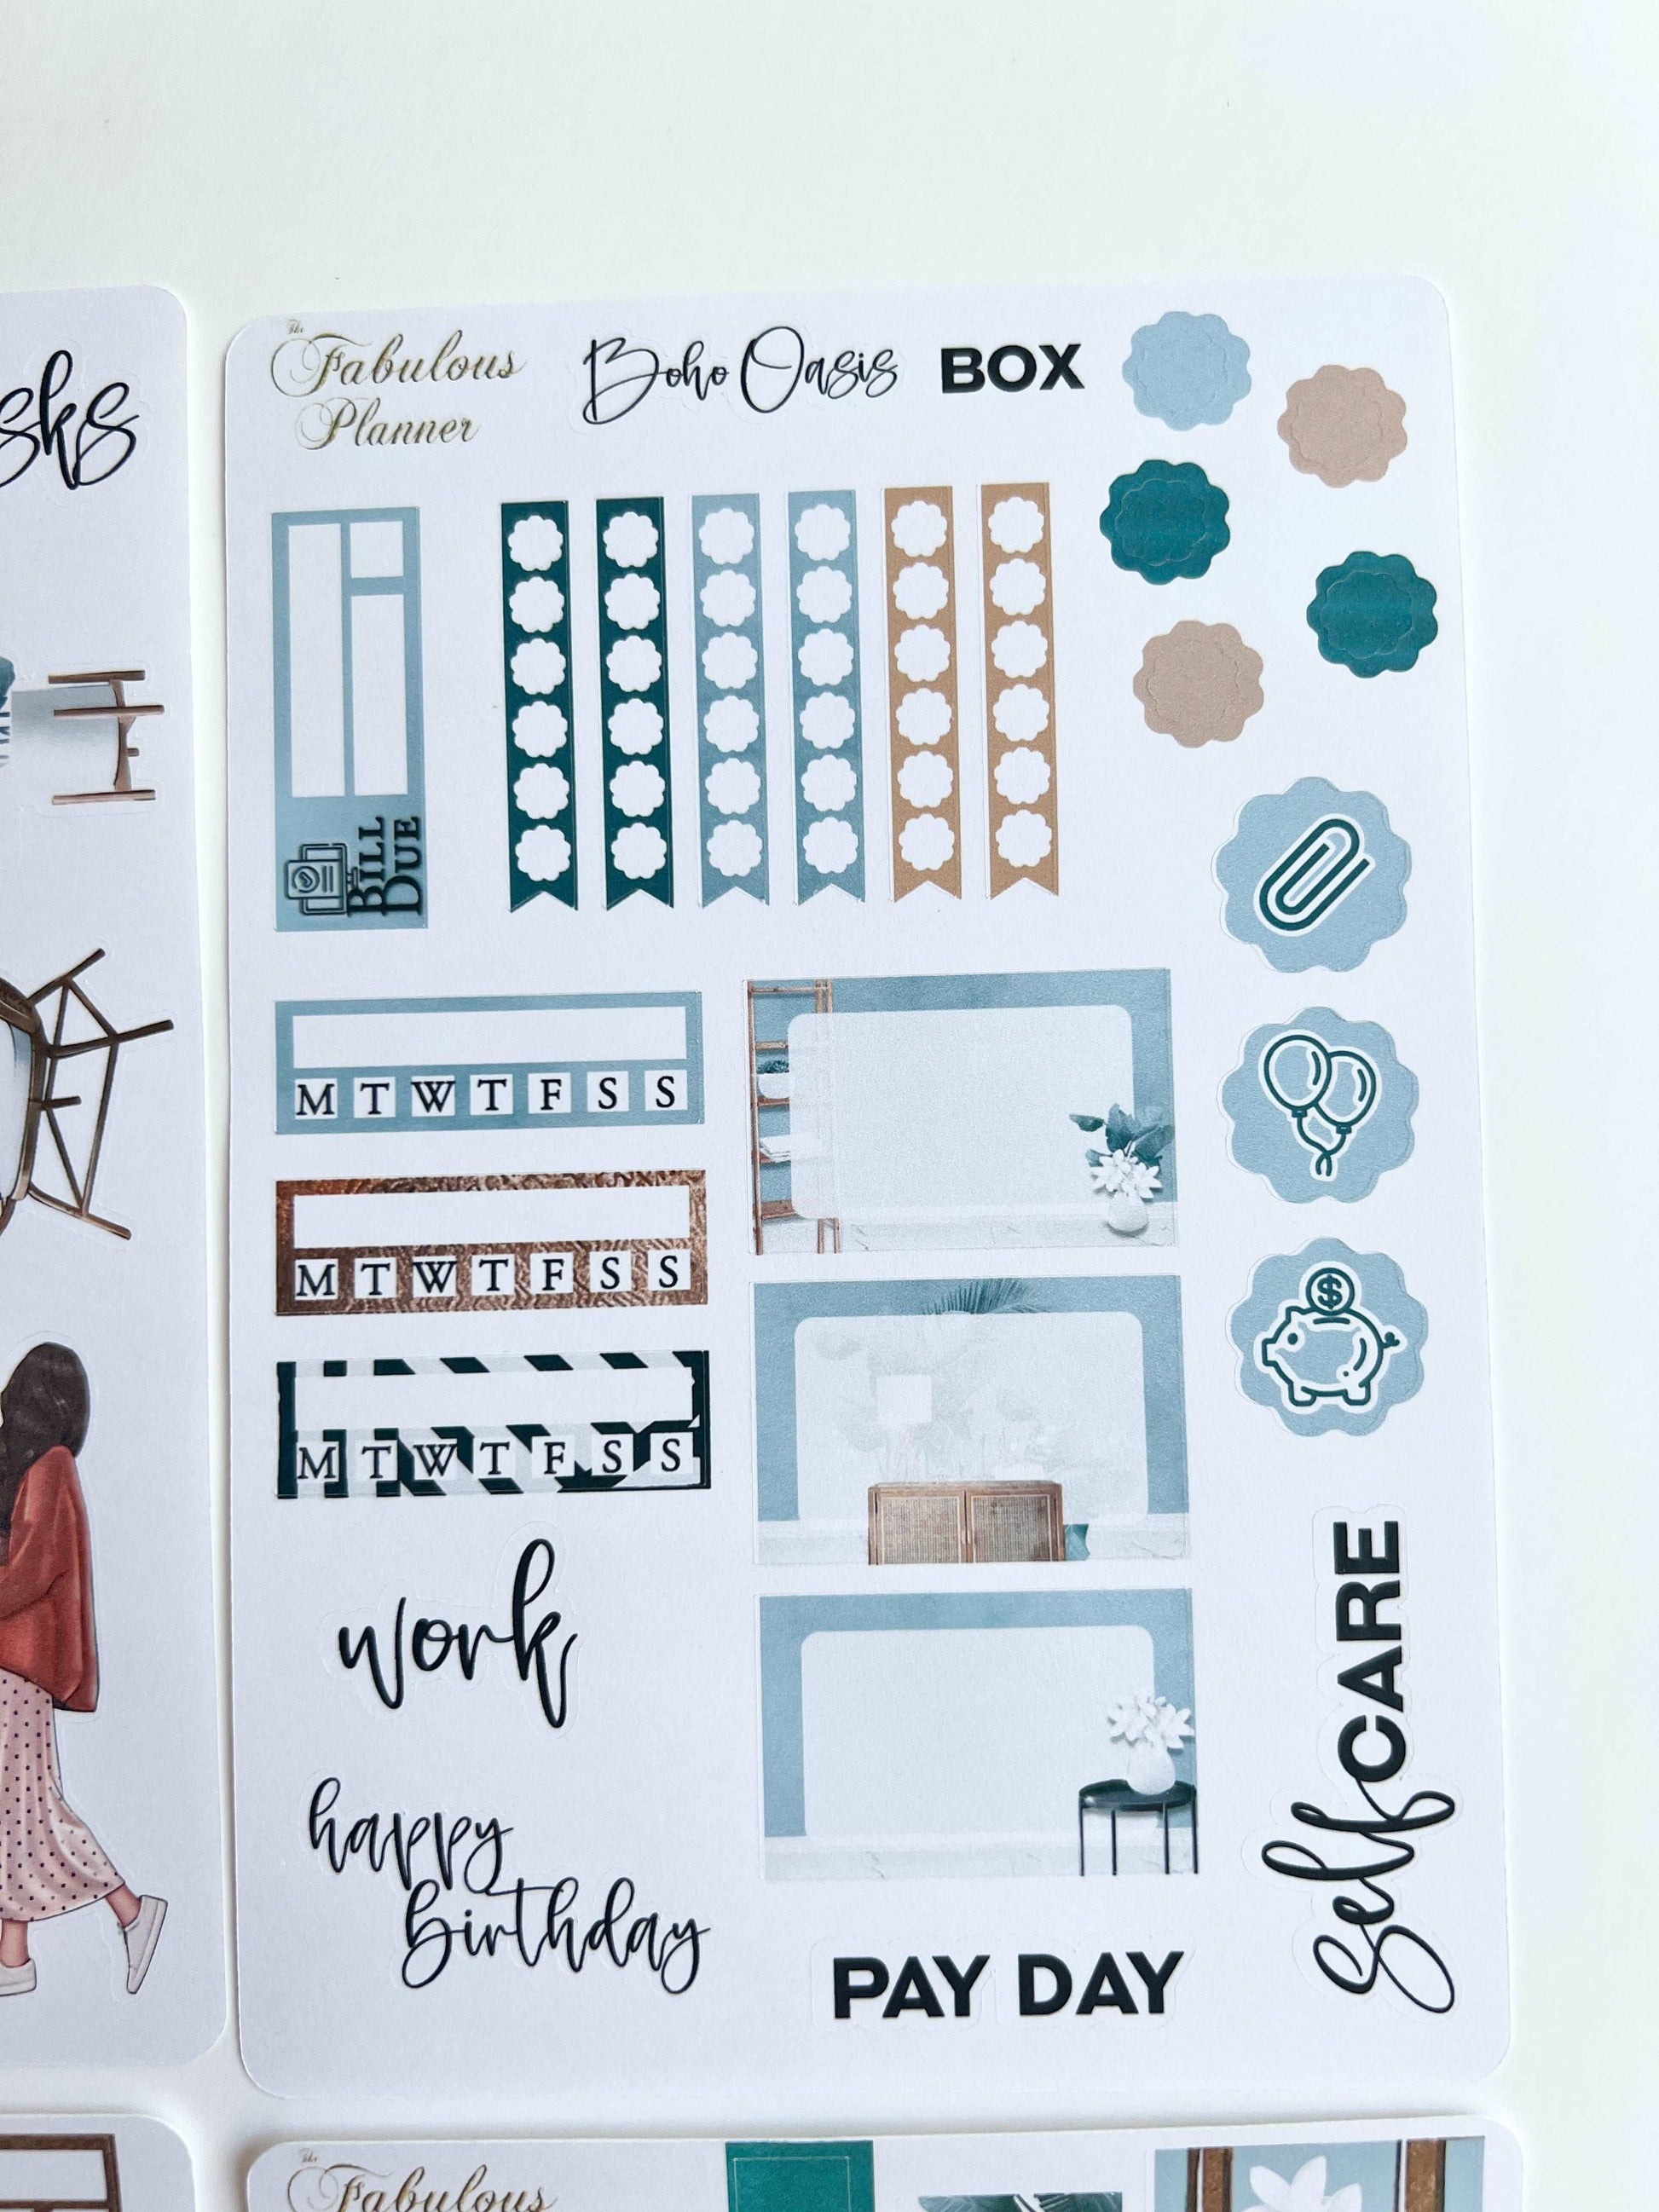 sks
The
Fabulous
Planner
Boho Oasis BOX
BILL
DUE
M T W T F S S
M T W T F S S
M T W T F S S
work
happy
birthday
PAY DAY
Self CARE
$
The
Fabulous